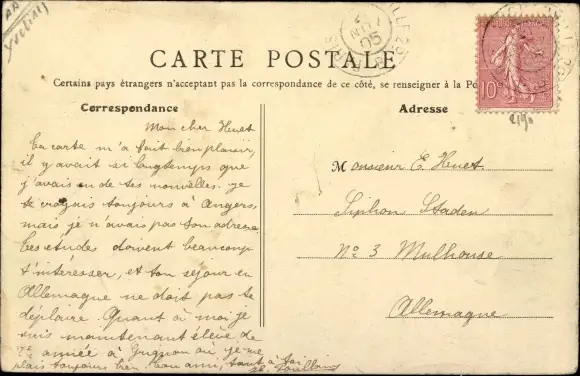 AA
Yvelines
CARTE POSTALE
Certains pays étrangers n'acceptant pas la correspondance de ce côté, se renseigner à la Po
Correspondance
Adresse
10
05
Mon cher Huet
Ta carte m'a fait bien plaisir,
il y avait si longtemps que
j'avais eu de tes nouvelles. Je
te croyais toujours à Angers,
mais je n'avais pas ton adresse
Tes études doivent beaucoup
t'intéresser, et ton séjour en
Allemagne ne doit pas te
déplaire. Quant à moi je
suis maintenant élève de
2e année à Grignon où je me
plais toujours bien. bon ami, tout à toi
Monsieur E. Huet.
Siphon Staden
No 3 Mulhouse
Allemagne